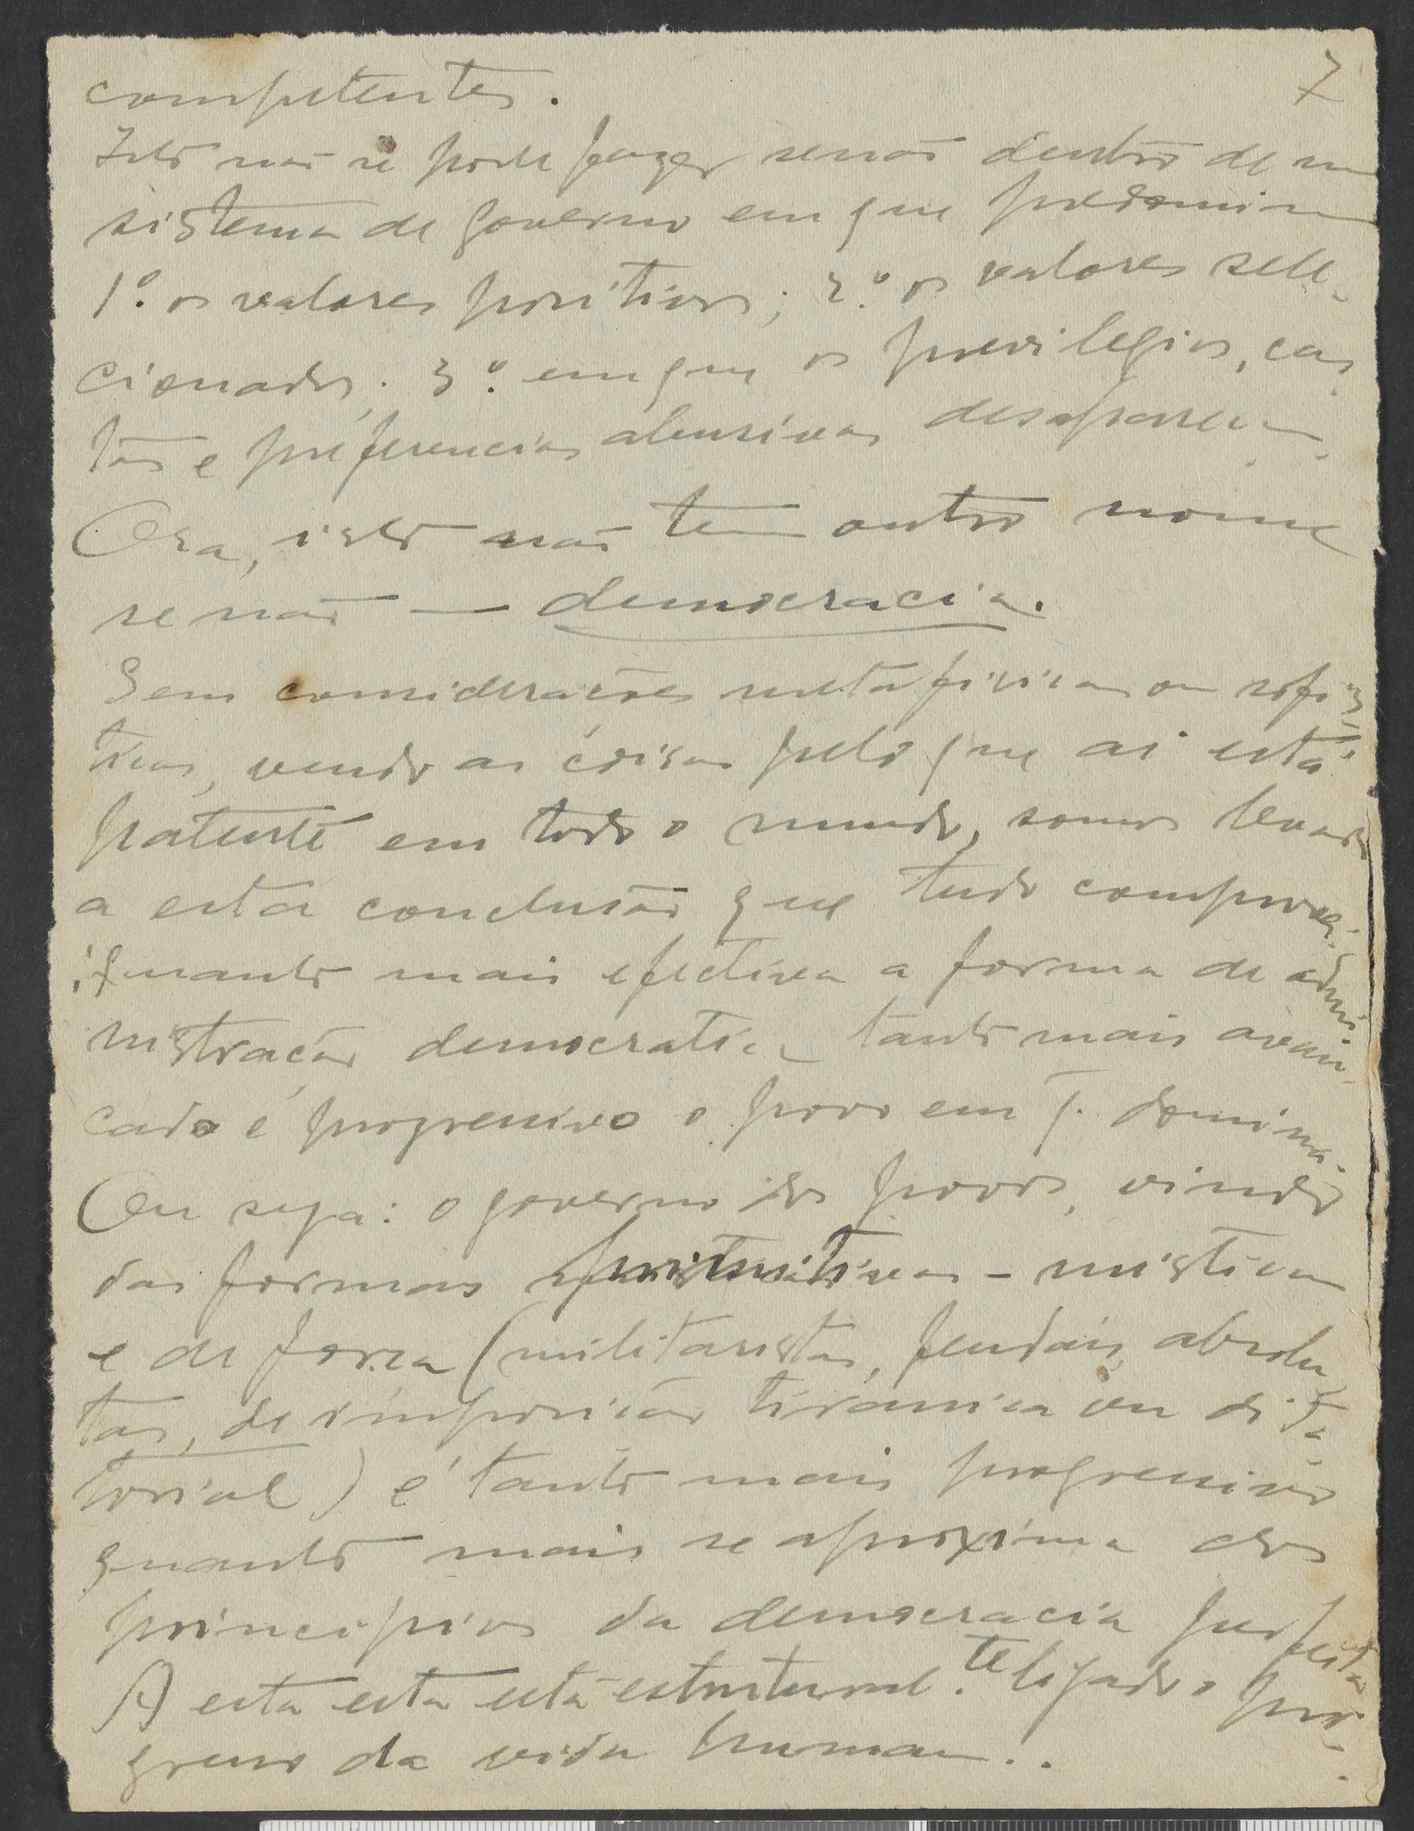 7
competentes.
Isto não se pode fazer senão dentro de um
sistema de governo em que predominem
1.º os valores positivos; 2.º os valores sele-
cionados; 3.º em que os previlegios, cas-
tas e preferencias abusivas desapareçam.
Ora, isto não tem outro nome
senão — democracia.
Sem considerações metafisicas ou sofis-
ticas, vendo as coisas pelo que ai está
patente em todo o mundo, somos levados
a esta conclusão que tudo comprova:
quanto mais efectiva a forma de admi-
nistração democratica tanto mais avan-
çado e progressivo o povo em q. domina.
Ou seja: o governo dos povos, vindo
das formas primitivas - misticas
e de força (militaristas, feudais, absolu-
tas, de imposição tirânica ou dita-
torial) é tanto mais progressivo
quanto mais se aproxima dos
principios da democracia perfeita
A esta esta está estrutural.te ligado o pro-
gresso da vida humana..